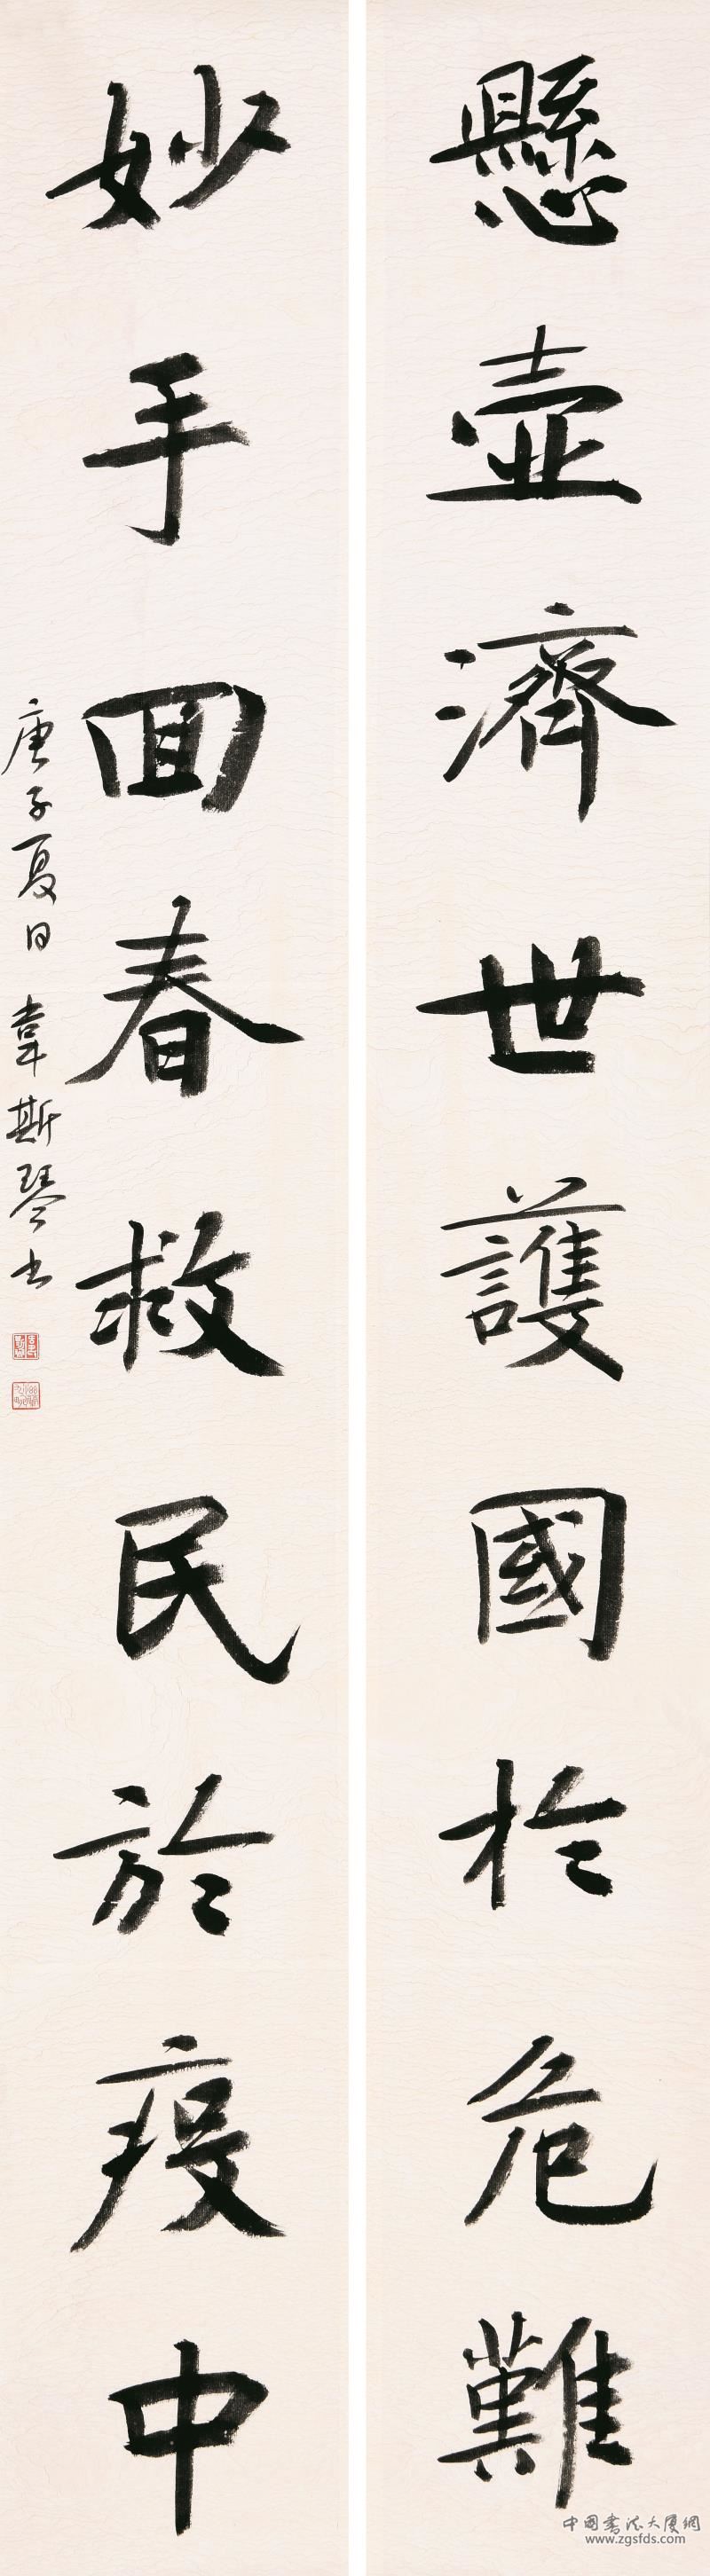 懸壺濟世護國於危難
妙手回春救民於疫中
庚子夏日韋斯琴書
中国书法大厦網
www.zgsfds.com